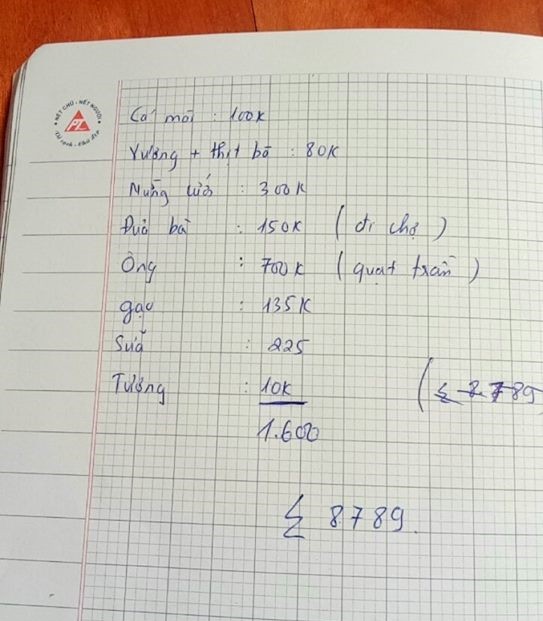 NÉT CHỮ - NẾT NGƯỜI
PL
Cá mòi : 100K
Xương + thịt bò : 80K
Mừng cưới : 300K
Đưa bà : 150K ( đi chợ )
Ông : 700K ( quạt trần )
gạo : 135K
Sữa : 225
Tương : 10K
1.600
( Σ 8789
Σ 8789.